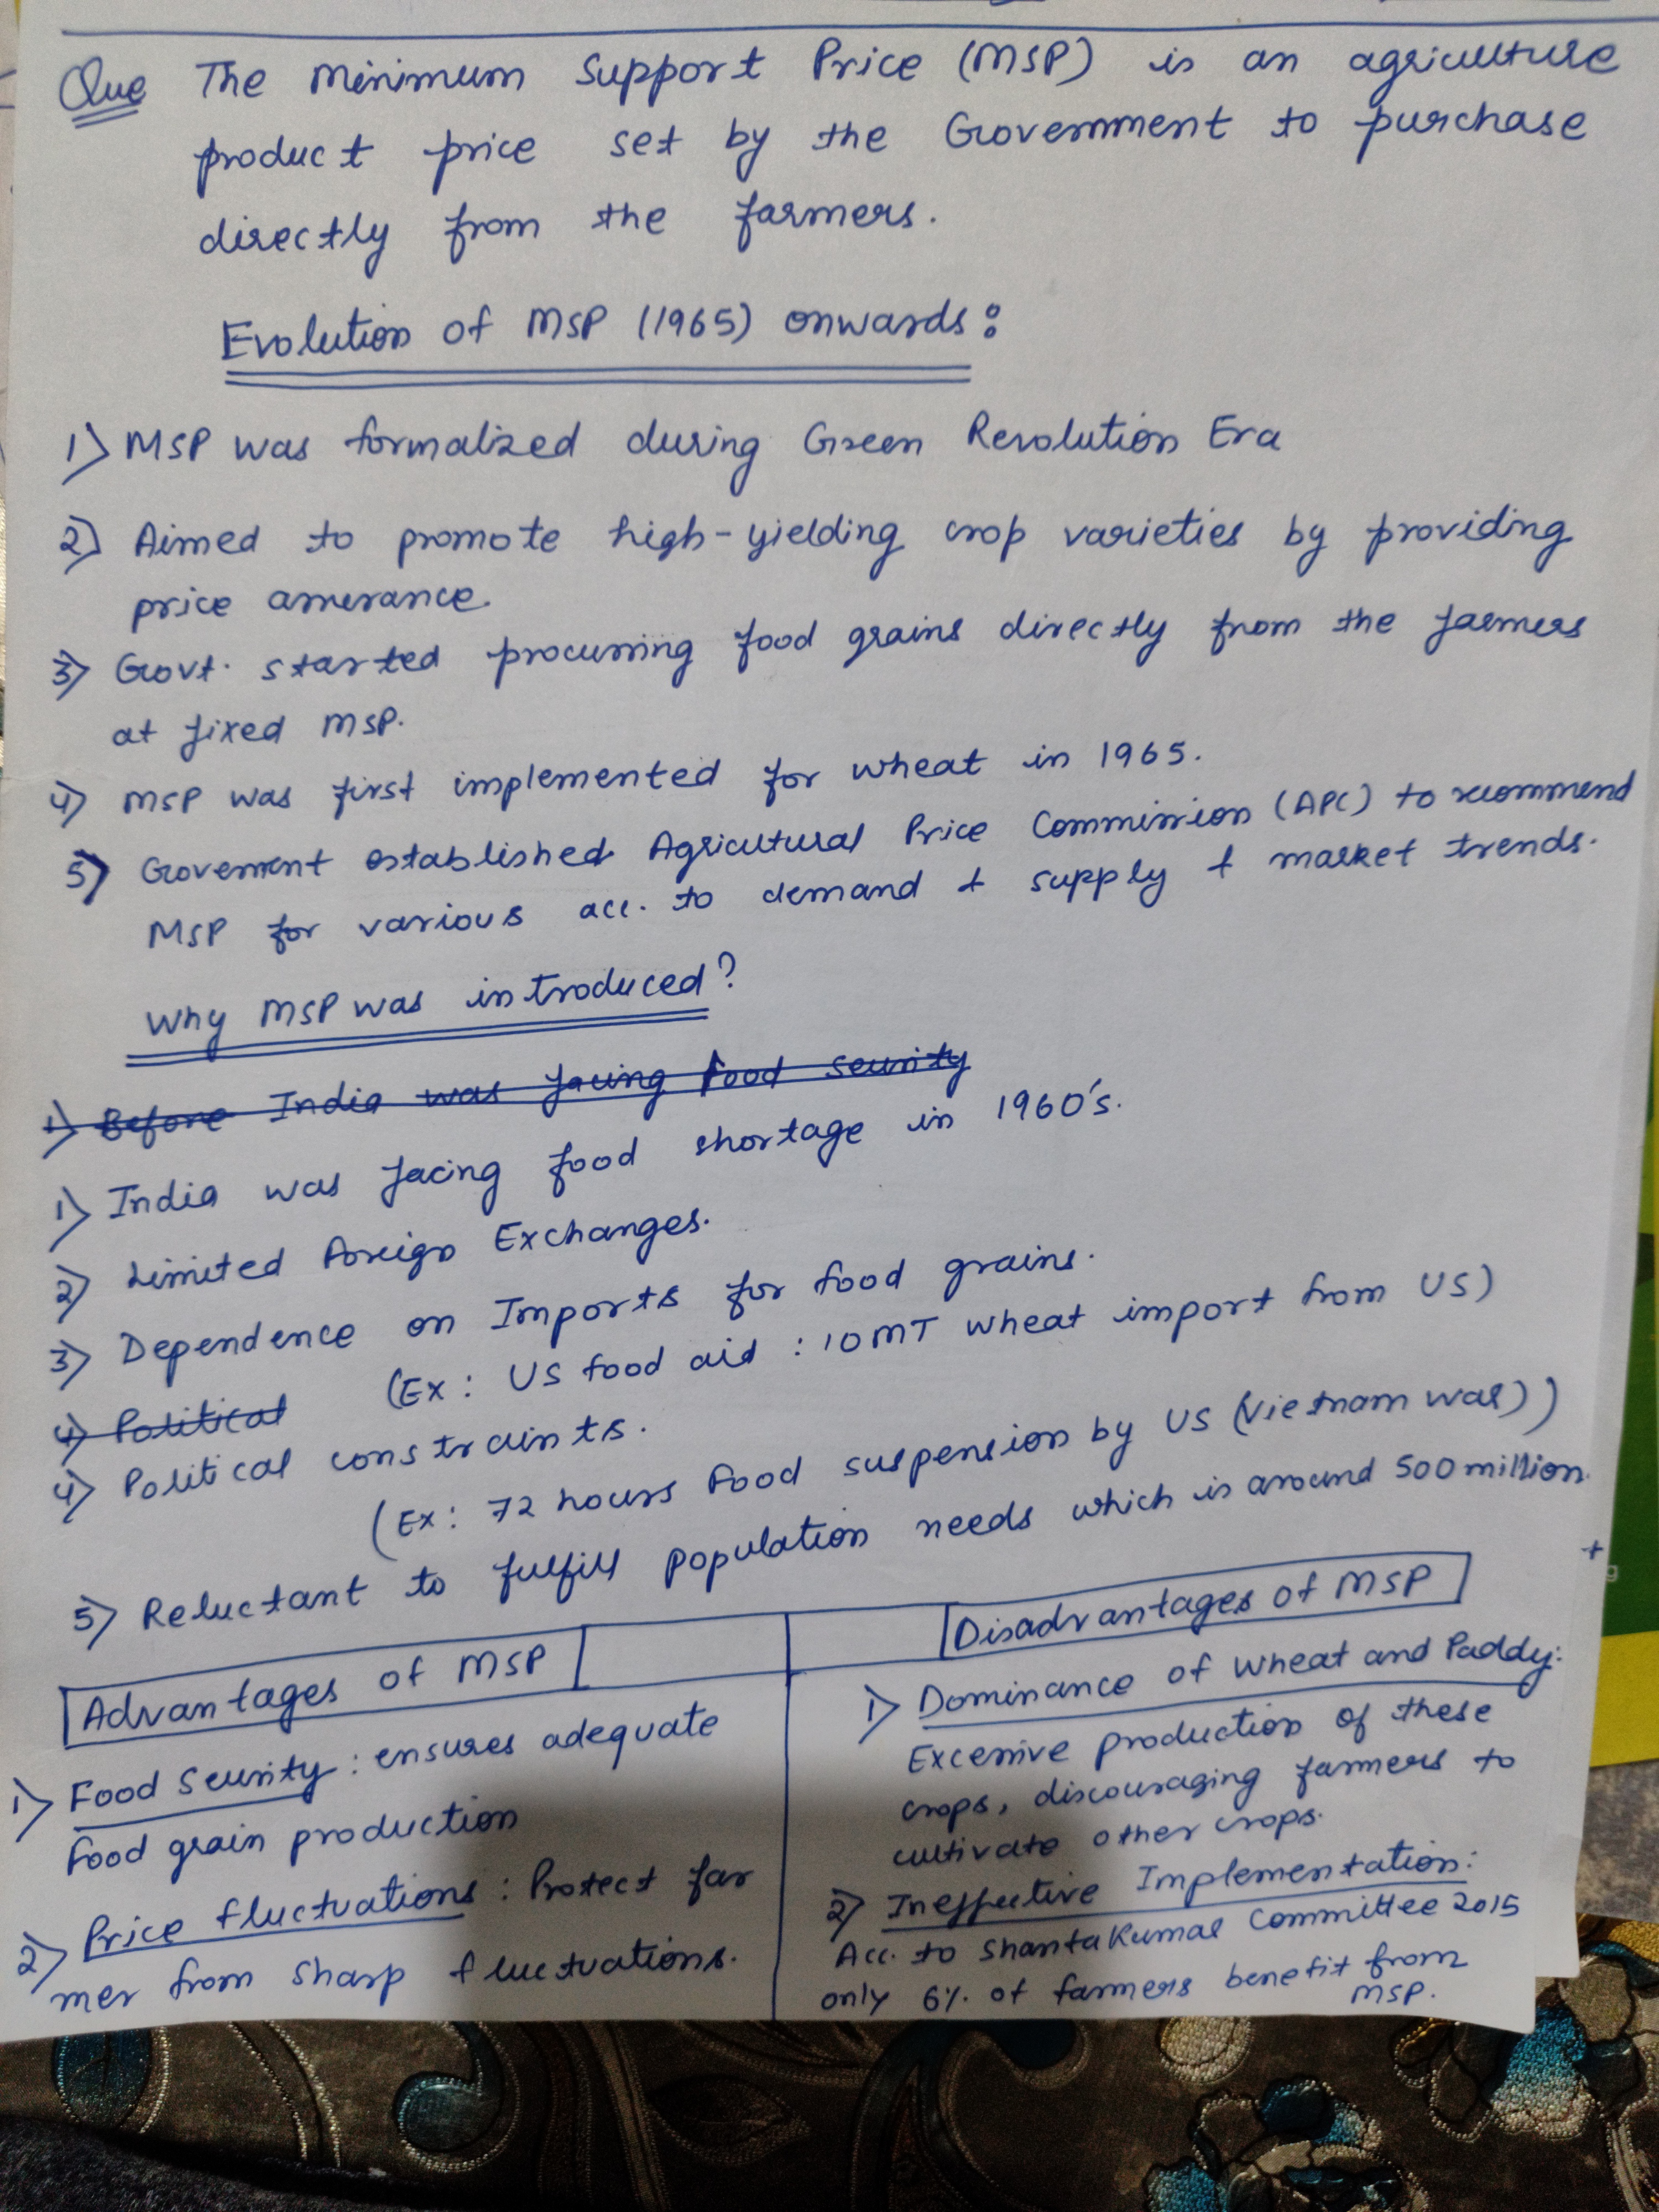 Que The Minimum Support Price (MSP) is an agriculture
product price set by the Government to purchase
directly from the farmers.
Evolution of MSP (1965) onwards:
1) MSP was formalized during Green Revolution Era
2) Aimed to promote high-yielding crop varieties by providing
price assurance.
3) Govt. started procurring food grains directly from the farmers
at fixed MSP.
4) MSP was first implemented for wheat in 1965.
5) Goverment established Agricutural Price Commission (APC) to recommend
MSP for various acc. to demand & supply & market trends.
Why MSP was introduced?
1) Before India was facing food security
1) India was facing food shortage in 1960's.
2) Limited Foreign Exchanges.
3) Dependence on Imports for food grains.
(Ex: US food aid : 10MT wheat import from US)
4) Political
4) Political constraints.
(Ex: 72 hours Food suspension by US (Vietnam war))
5) Reluctant to fulfill population needs which is around 500 million.
Advantages of MSP
1) Food Security: ensures adequate
food grain production
2) Price fluctuations: Protect far
mer from sharp fluctuations.
Disadvantages of MSP
1) Dominance of Wheat and Paddy:
Excessive production of these
crops, discouraging farmers to
cultivate other crops.
2) Ineffective Implementation:
Acc. to Shanta Kumar Committee 2015
only 6% of farmers benefit from
MSP.